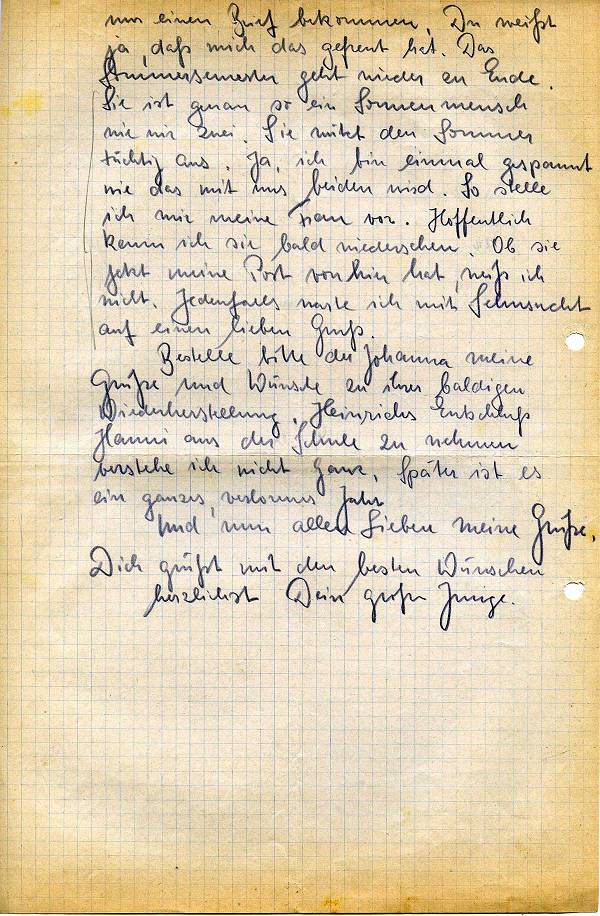 nur einen Brief bekommen. Du weißt
ja, daß mich das gefreut hat. Das
Sommersemester geht wieder zu Ende.
Sie ist genau so ein Sonnenmensch
wie wir zwei. Sie nützt den Sommer
tüchtig aus. Ja, ich bin einmal gespannt
wie das mit uns beiden wird. So stelle
ich mir meine Frau vor. Hoffentlich
kann ich sie bald wiedersehen. Ob sie
jetzt meine Post von hier hat, weiß ich
nicht. Jedenfalls warte ich mit Sehnsucht
auf einen lieben Gruß.
Bestelle bitte der Johanna meine
Grüße und Wünsche zu ihrer baldigen
Wiederherstellung. Heinrichs Entschluß
Hanni aus der Schule zu nehmen
verstehe ich nicht ganz, später ist es
ein ganzes, verlorenes Jahr
Und nun allen Lieben meine Grüße,
Dich grüßt mit den besten Wünschen
herzlichst Dein großer Junge.